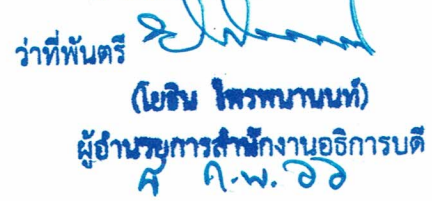 ว่าที่พันตรี
(โยธิน ไพรพนานนท์)
ผู้อำนวยการสำนักงานอธิการบดี
ก.พ. ๖๖